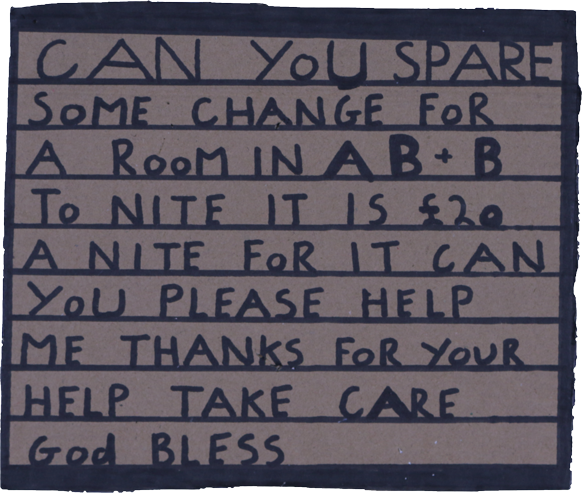 CAN YoU SPARE
SoME CHANGE FoR
A RooM IN A B+B
To NITE IT IS £20
A NITE FoR IT CAN
YoU PLEASE HELP
ME THANKS FoR YoUR
HELP TAKE CARE
God BLESS